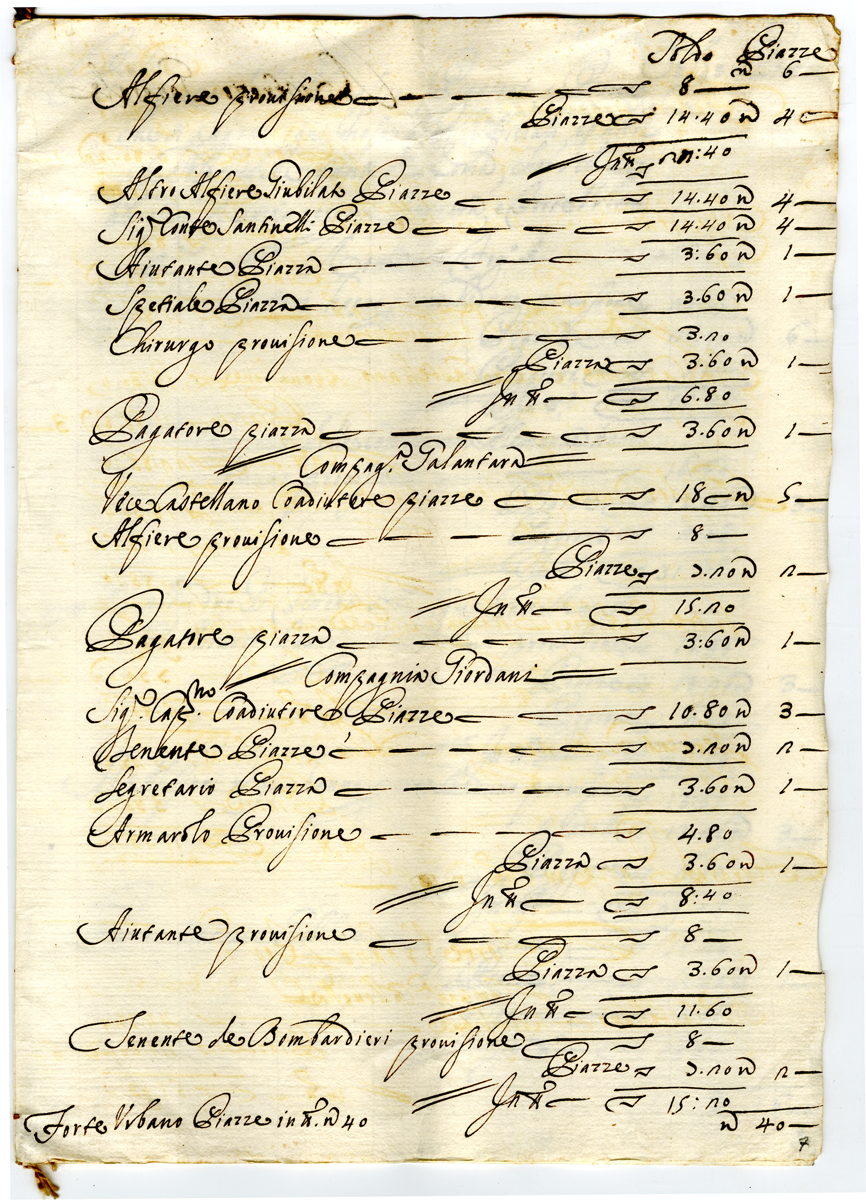 Soldo Piazze
n 6 —
Alfiere provisione — 8 —
Piazze 14.40 n 4 —
In tto 22:40
Altro Alfiere Giubilato Piazze — 14.40 n 4 —
Sigr Conte Santinelli Piazze — 14.40 n 4 —
Aiutante Piazza — 3:60 n 1 —
Spetiale Piazza — 3.60 n 1 —
Chirurgo provisione — 3.20
Piazza 3.60 n 1 —
In tto — 6.80
Pagatore piazza — 3.60 n 1 —
Compaga Galantara
Vece Castellano Coadiutore piazze — 18 — n 5 —
Alfiere provisione — 8 —
Piazze 7.20 n 2 —
In tto — 15.20
Pagatore piazza — 3:60 n 1 —
Compagnia Giordani
Sigr Capno Coadiutore Piazze — 10.80 n 3 —
Tenente Piazze — 7.20 n 2 —
Segretario Piazza — 3.60 n 1 —
Armarolo Provisione — 4.80
Piazza 3.60 n 1 —
In tto — 8:40
Aiutante provisione — 8 —
Piazza 3.60 n 1 —
In tto — 11.60
Tenente de Bombardieri provisione — 8 —
Piazze 7.20 n 2 —
In tto — 15:20
Forte Urbano Piazze in tto n 40 n 40 —
7